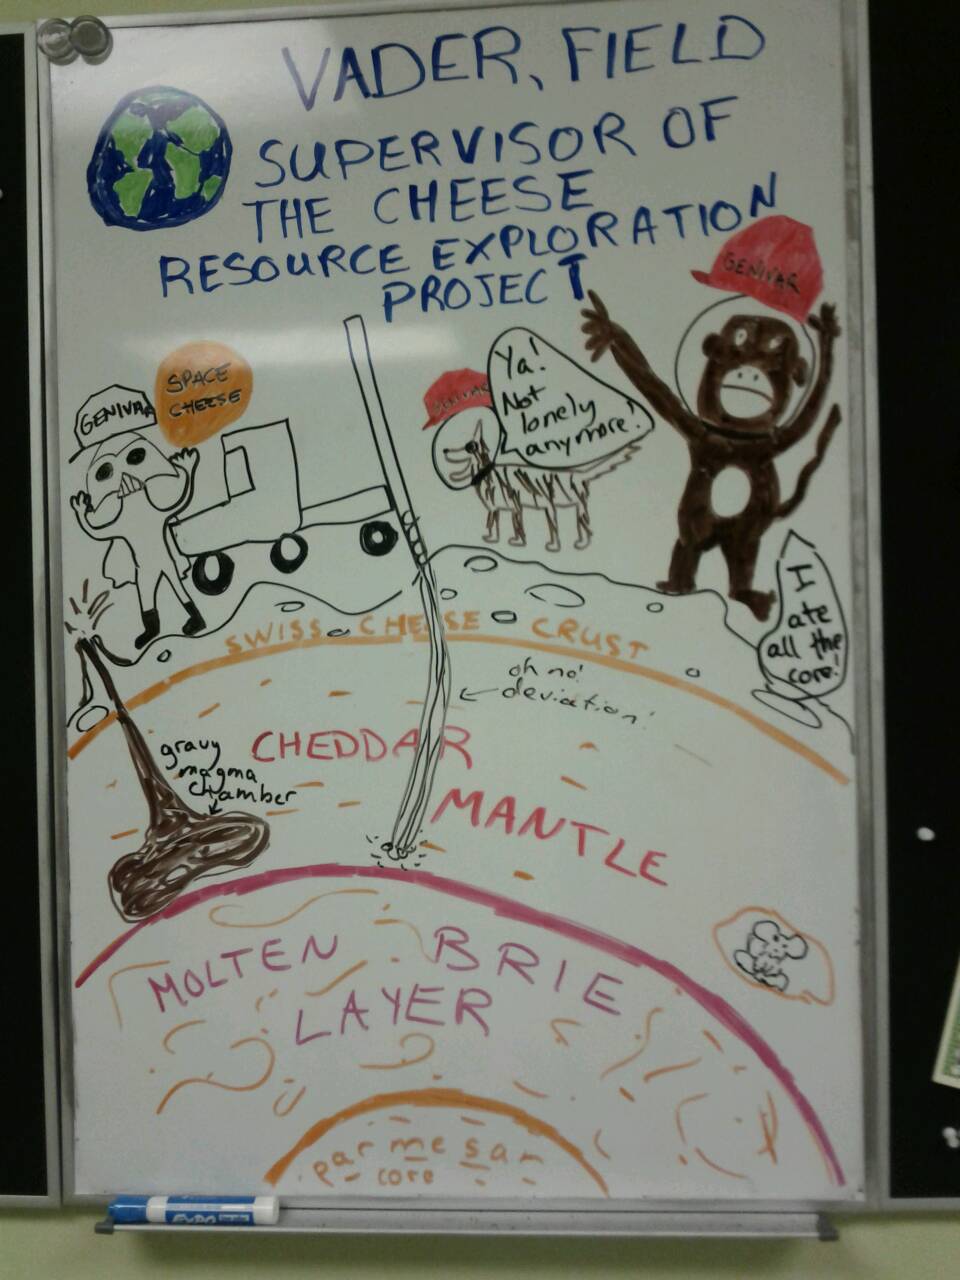 VADER, FIELD
SUPERVISOR OF
THE CHEESE
RESOURCE EXPLORATION
PROJECT
GENIVAR
GENIVAR
SPACE
CHEESE
GENIVAR
Ya!
Not
lonely
anymore!
I
ate
all the
core!
SWISS CHEESE CRUST
oh no!
deviation!
CHEDDAR
MANTLE
gravy
magma
chamber
MOLTEN BRIE
LAYER
parmesan
core
EXPO